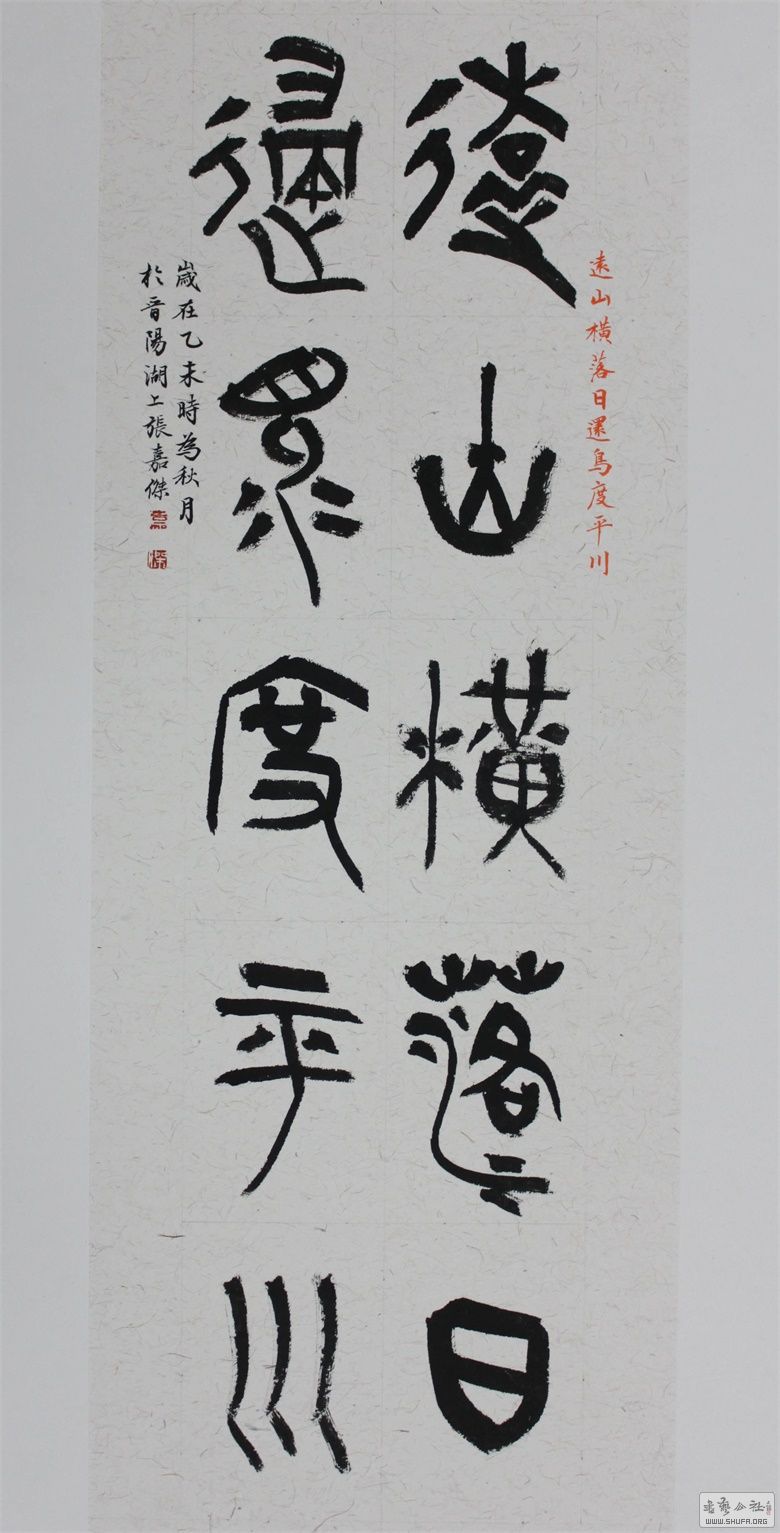 遠山橫落日還鳥度平川
遠山橫落日
歸鳥度平川
歲在乙未時為秋月
於晋陽湖上張嘉傑
書藝公社
WWW.SHUFA.ORG